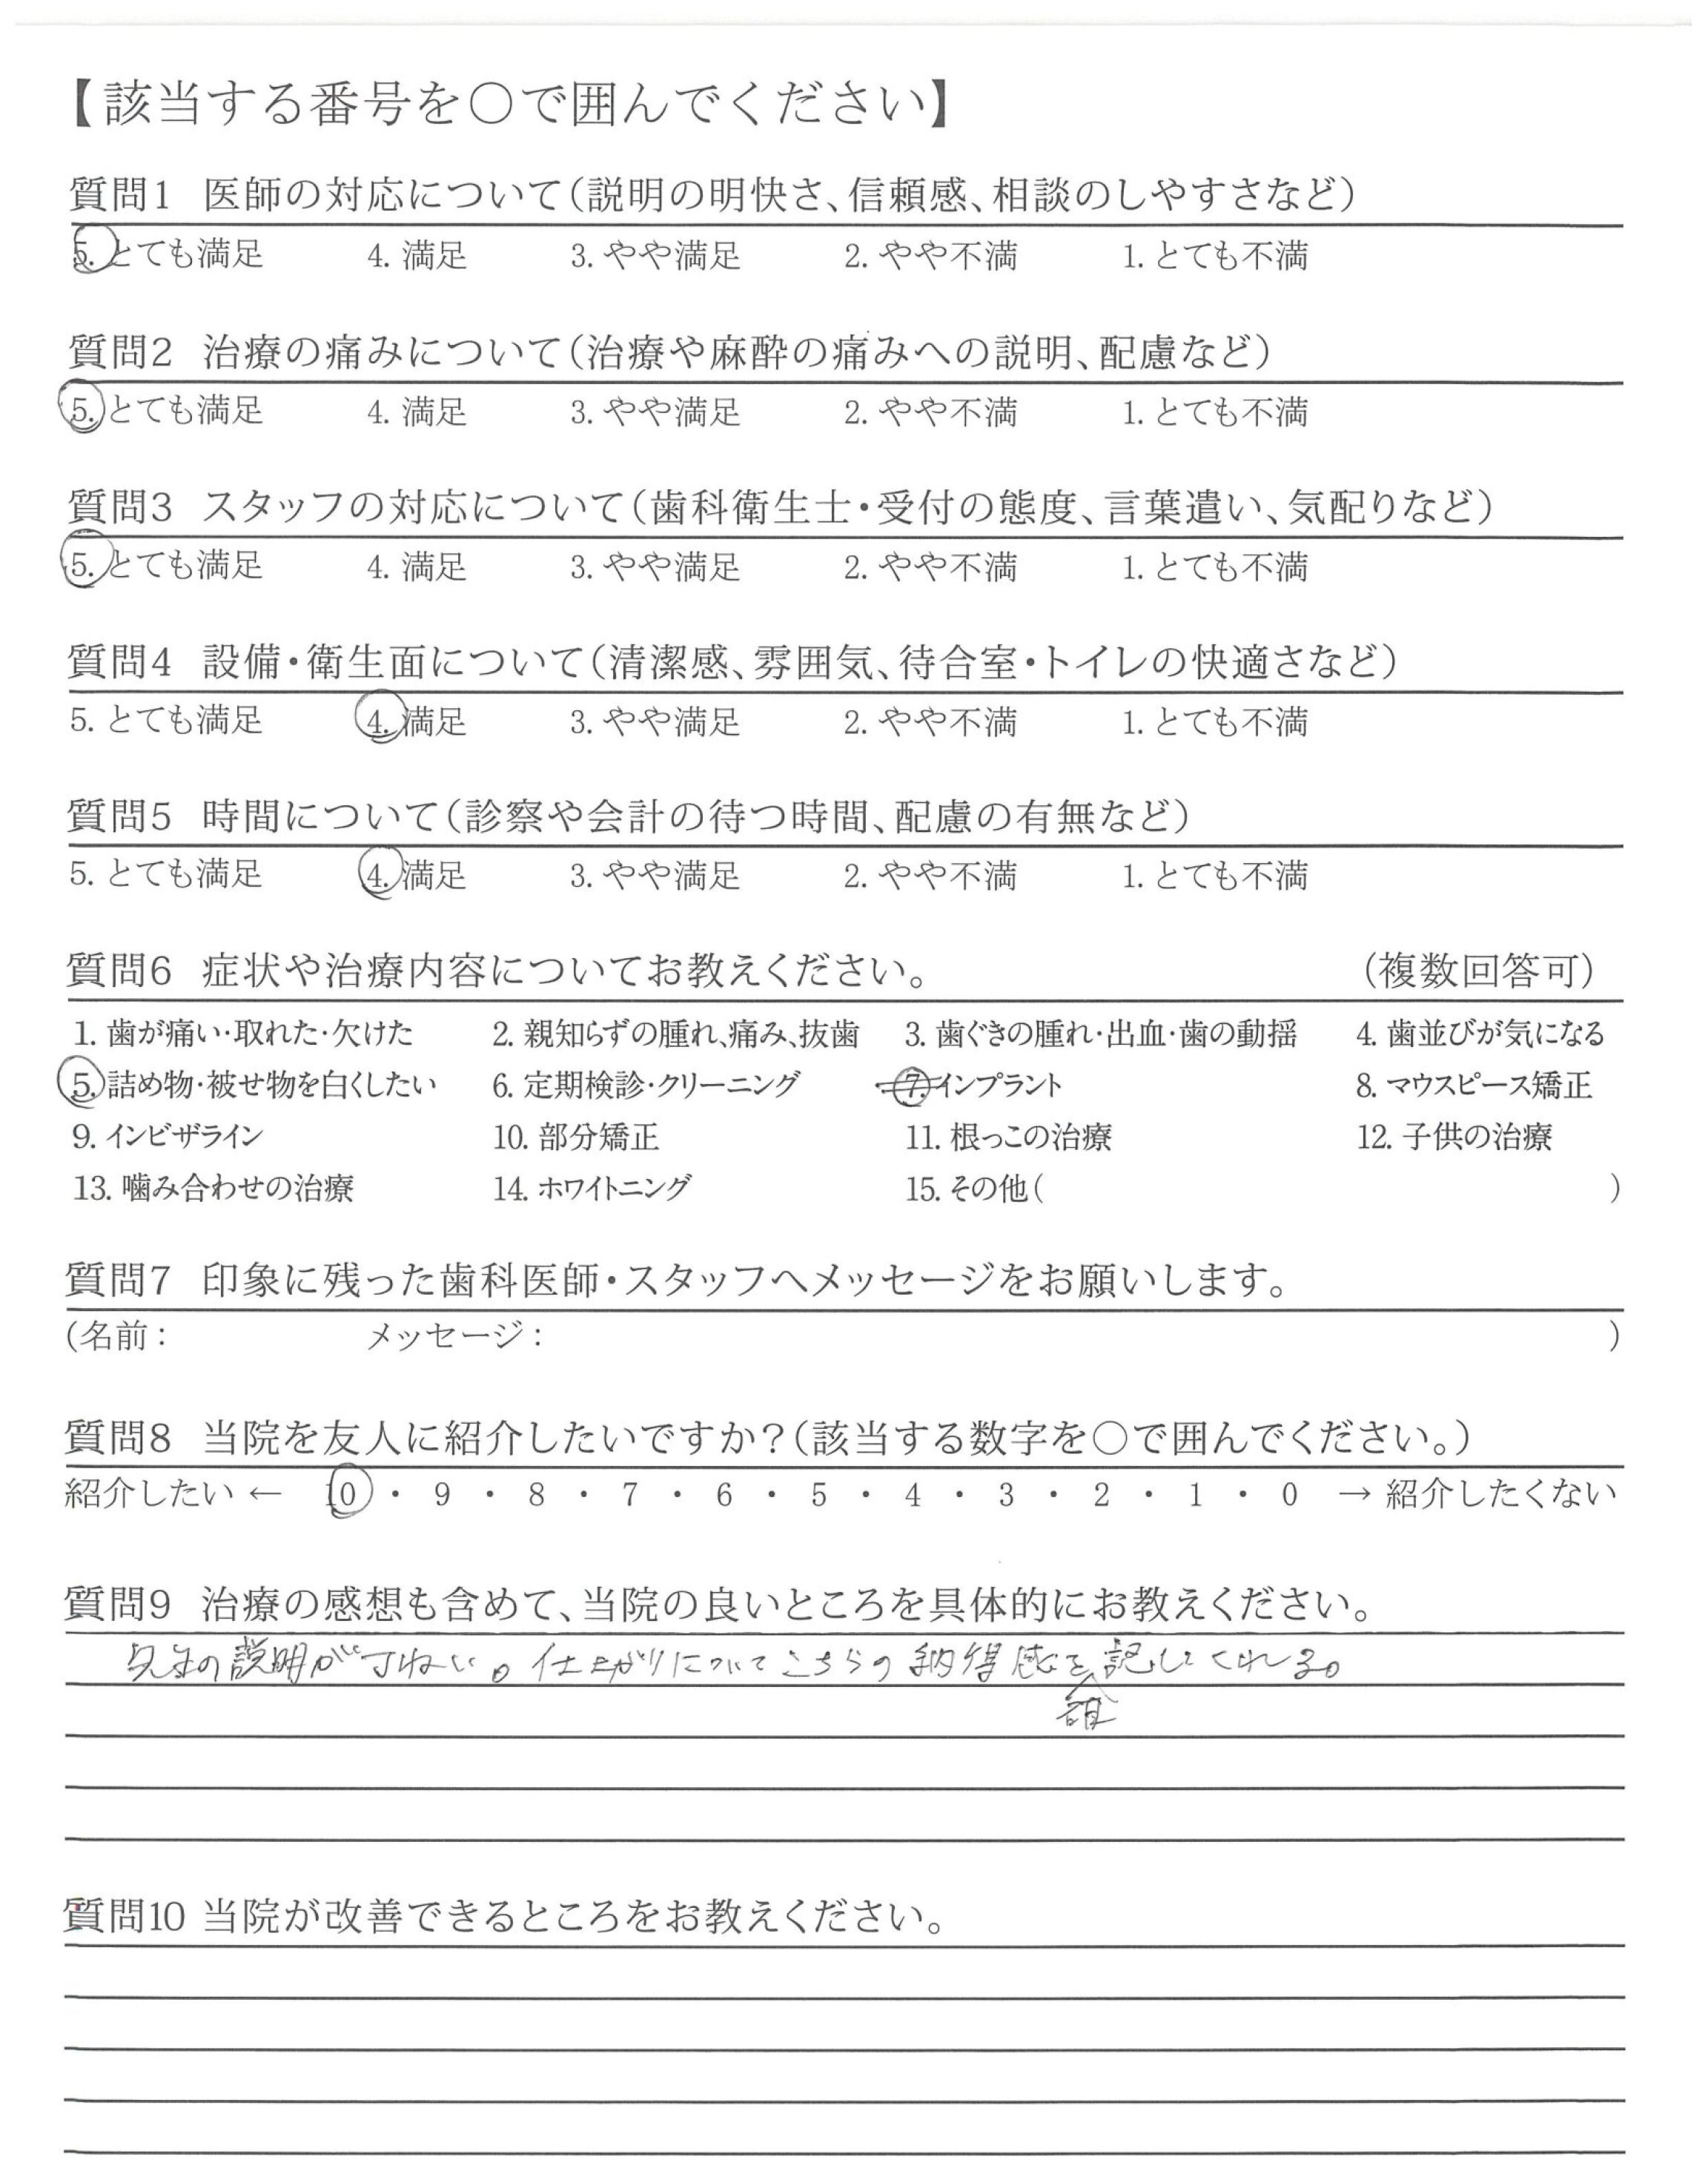 【該当する番号を〇で囲んでください】
質問1 医師の対応について(説明の明快さ、信頼感、相談のしやすさなど)
5. とても満足 4. 満足 3. やや満足 2. やや不満 1. とても不満
質問2 治療の痛みについて(治療や麻酔の痛みへの説明、配慮など)
5. とても満足 4. 満足 3. やや満足 2. やや不満 1. とても不満
質問3 スタッフの対応について(歯科衛生士・受付の態度、言葉遣い、気配りなど)
5. とても満足 4. 満足 3. やや満足 2. やや不満 1. とても不満
質問4 設備・衛生面について(清潔感、雰囲気、待合室・トイレの快適さなど)
5. とても満足 4. 満足 3. やや満足 2. やや不満 1. とても不満
質問5 時間について(診察や会計の待つ時間、配慮の有無など)
5. とても満足 4. 満足 3. やや満足 2. やや不満 1. とても不満
質問6 症状や治療内容についてお教えください。 (複数回答可)
1. 歯が痛い・取れた・欠けた 2. 親知らずの腫れ、痛み、抜歯 3. 歯ぐきの腫れ・出血・歯の動揺 4. 歯並びが気になる
5. 詰め物・被せ物を白くしたい 6. 定期検診・クリーニング 7. インプラント 8. マウスピース矯正
9. インビザライン 10. 部分矯正 11. 根っこの治療 12. 子供の治療
13. 噛み合わせの治療 14. ホワイトニング 15. その他( )
質問7 印象に残った歯科医師・スタッフへメッセージをお願いします。
(名前: メッセージ: )
質問8 当院を友人に紹介したいですか?(該当する数字を〇で囲んでください。)
紹介したい ← 10 ・ 9 ・ 8 ・ 7 ・ 6 ・ 5 ・ 4 ・ 3 ・ 2 ・ 1 ・ 0 → 紹介したくない
質問9 治療の感想も含めて、当院の良いところを具体的にお教えください。
先生の説明が丁ねい。仕上がりについてこちらの納得感を認してくれる。
質問10 当院が改善できるところをお教えください。